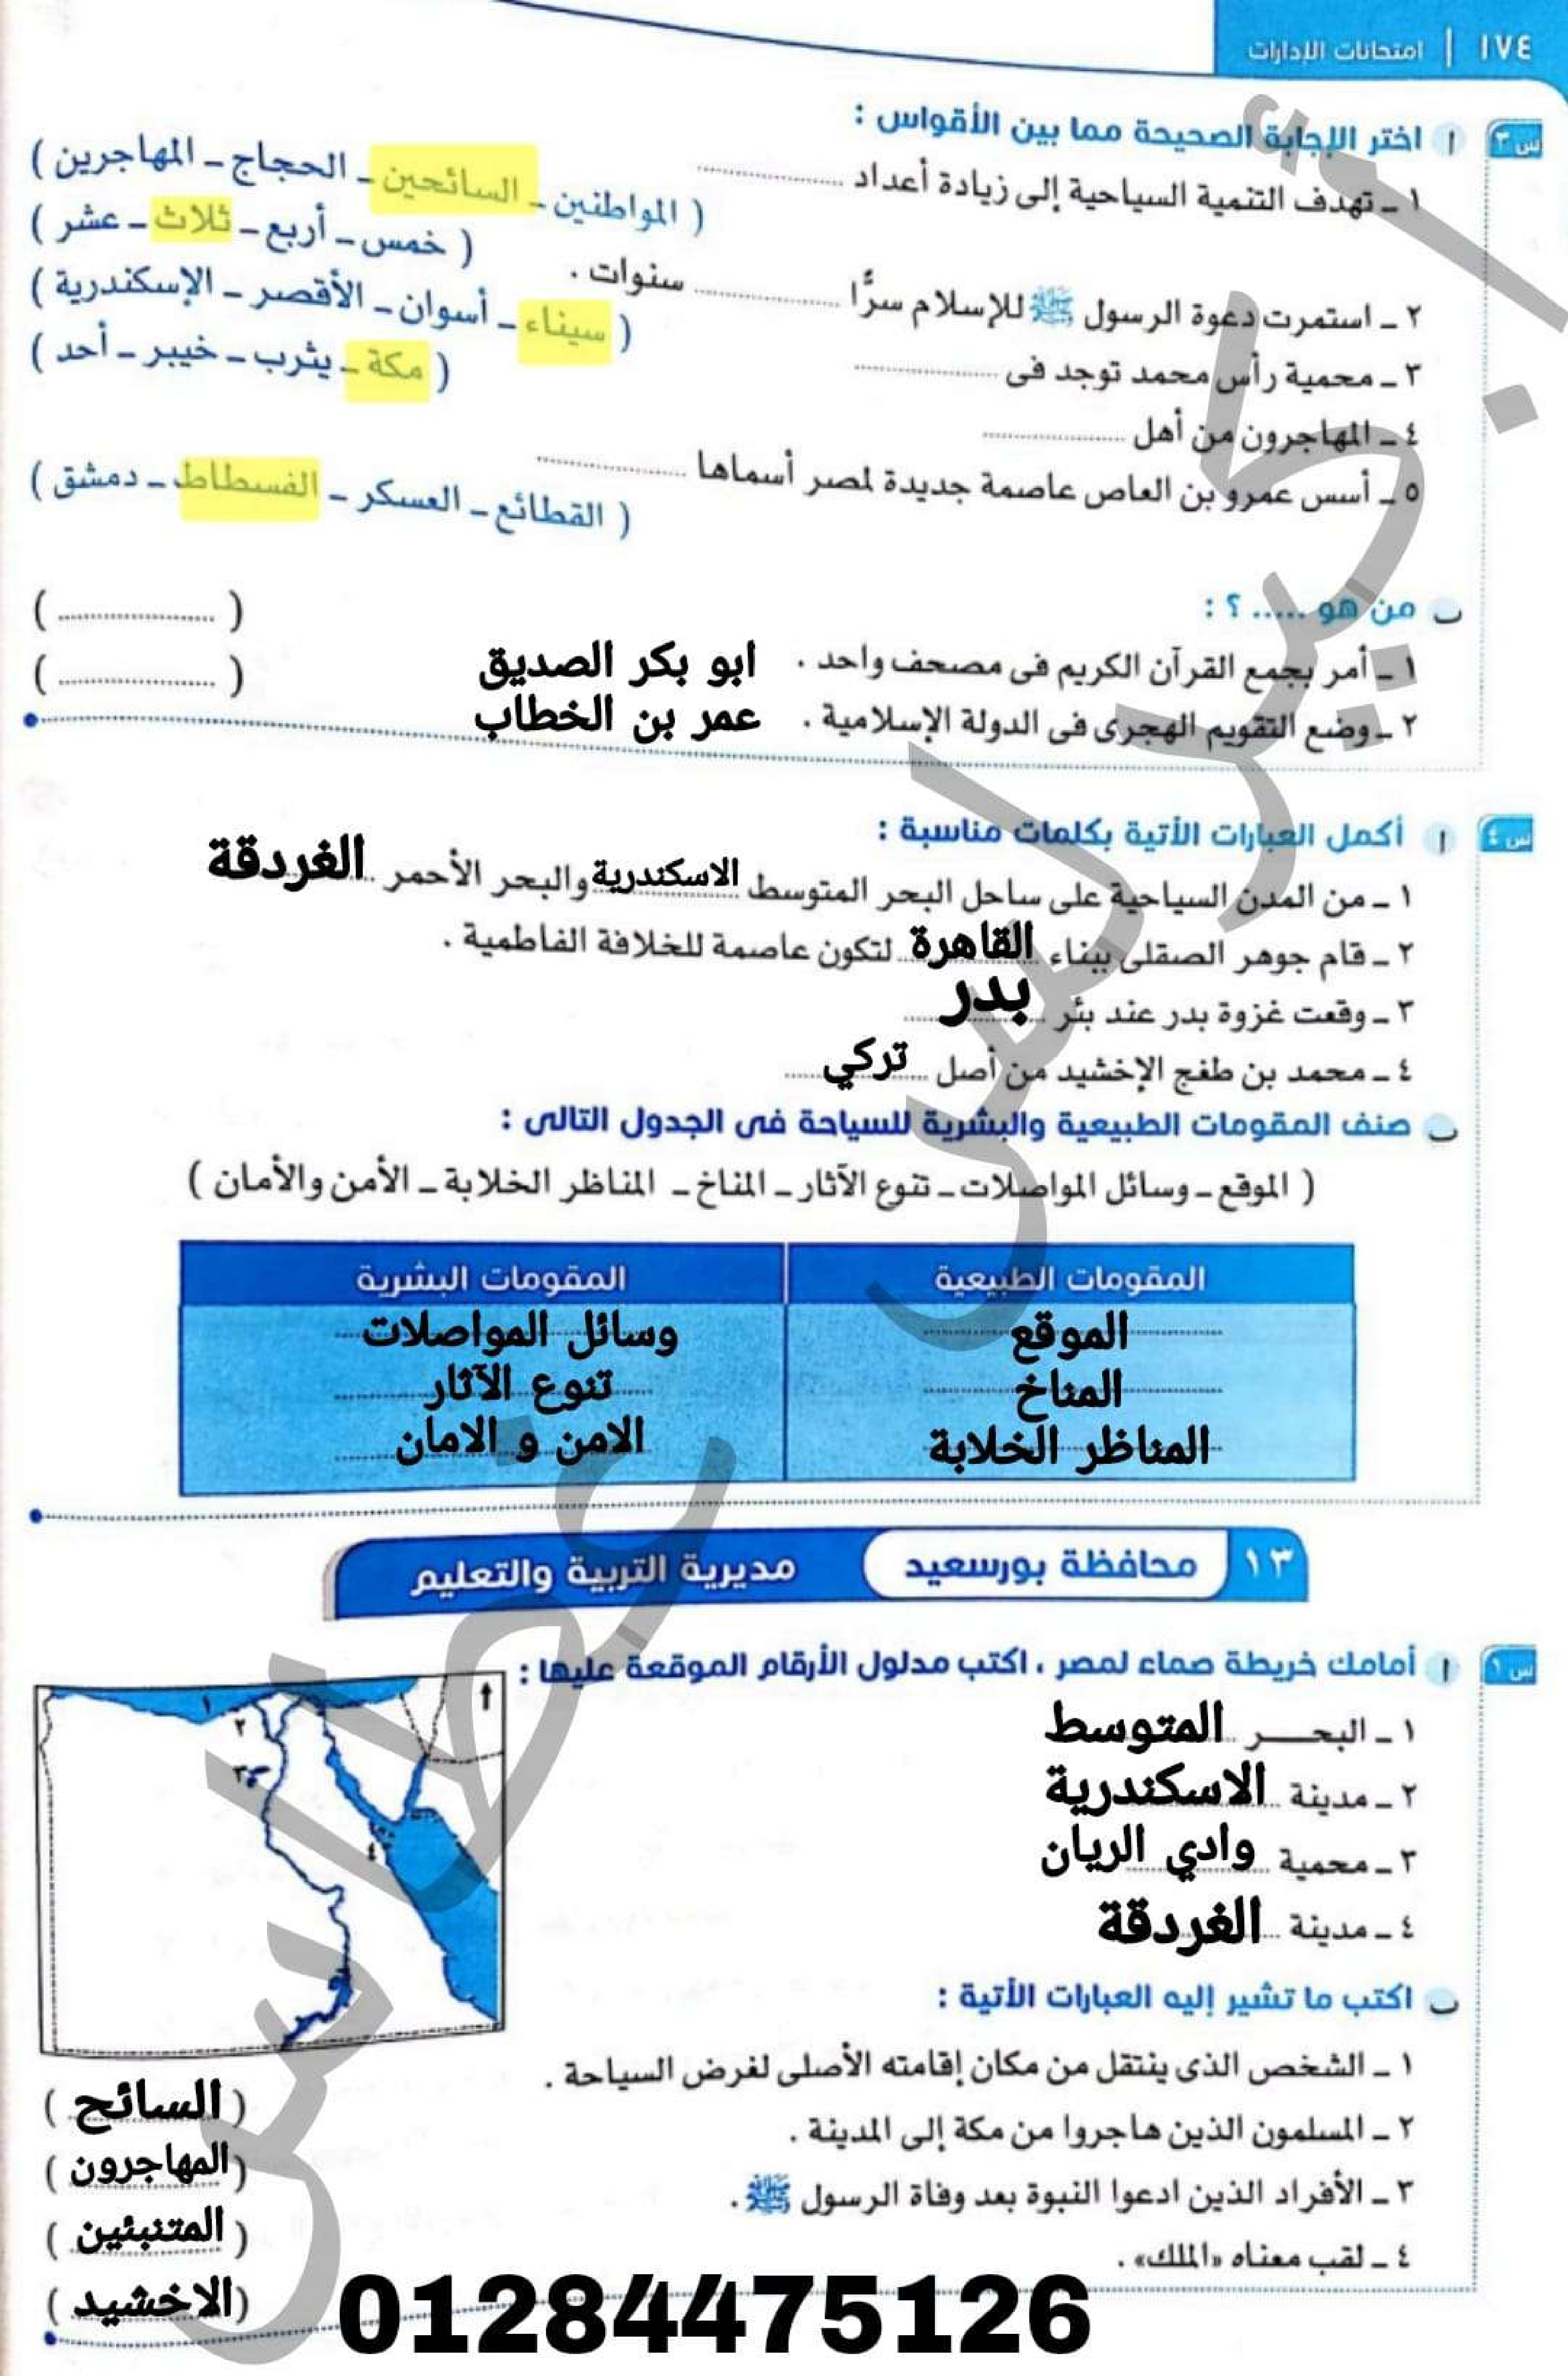 ١٧٤ | امتحانات الإدارات
س٣ ا اختر الإجابة الصحيحة مما بين الأقواس :
١ ـ تهدف التنمية السياحية إلى زيادة أعداد ..................
( المواطنين ـ السائحين ـ الحجاج ـ المهاجرين )
٢ ـ استمرت دعوة الرسول ﷺ للإسلام سرًّا .................. سنوات .
( خمس ـ أربع ـ ثلاث ـ عشر )
٣ ـ محمية رأس محمد توجد فى ..................
( سيناء ـ أسوان ـ الأقصر ـ الإسكندرية )
٤ ـ المهاجرون من أهل ..................
( مكة ـ يثرب ـ خيبر ـ أحد )
٥ ـ أسس عمرو بن العاص عاصمة جديدة لمصر أسماها ..................
( القطائع ـ العسكر ـ الفسطاط ـ دمشق )
ب من هو ...... ؟ :
١ ـ أمر بجمع القرآن الكريم فى مصحف واحد . ابو بكر الصديق ( .................. )
٢ ـ وضع التقويم الهجرى فى الدولة الإسلامية . عمر بن الخطاب ( .................. )
س٤ ا أكمل العبارات الأتية بكلمات مناسبة :
١ ـ من المدن السياحية على ساحل البحر المتوسط الاسكندرية والبحر الأحمر الغردقة
٢ ـ قام جوهر الصقلى ببناء القاهرة لتكون عاصمة للخلافة الفاطمية .
٣ ـ وقعت غزوة بدر عند بئر بدر
٤ ـ محمد بن طغج الإخشيد من أصل تركي
ب صنف المقومات الطبيعية والبشرية للسياحة فى الجدول التالى :
( الموقع ـ وسائل المواصلات ـ تنوع الآثار ـ المناخ ـ المناظر الخلابة ـ الأمن والأمان )
المقومات الطبيعية المقومات البشرية
الموقع وسائل المواصلات
المناخ تنوع الآثار
المناظر الخلابة الامن و الامان
١٣ محافظة بورسعيد مديرية التربية والتعليم
س١ ا أمامك خريطة صماء لمصر ، اكتب مدلول الأرقام الموقعة عليها :
١ ـ البحـــر المتوسط
٢ ـ مدينة الاسكندرية
٣ ـ محمية وادي الريان
٤ ـ مدينة الغردقة
١
٢
٣
٤
ب اكتب ما تشير إليه العبارات الأتية :
١ ـ الشخص الذى ينتقل من مكان إقامته الأصلى لغرض السياحة . ( السائح )
٢ ـ المسلمون الذين هاجروا من مكة إلى المدينة . ( المهاجرون )
٣ ـ الأفراد الذين ادعوا النبوة بعد وفاة الرسول ﷺ . ( المتنبئين )
٤ ـ لقب معناه «الملك» . ( الاخشيد )
01284475126